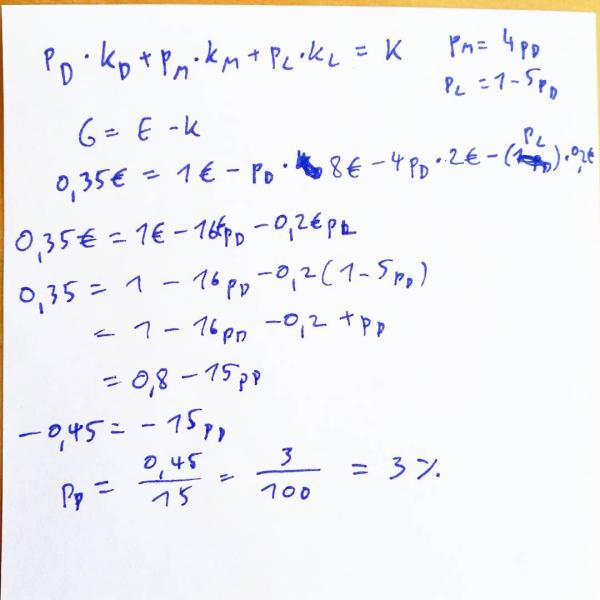 p_D · k_D + p_M · k_M + p_L · k_L = K
p_M = 4p_D
p_L = 1 - 5p_D
G = E - K
0,35€ = 1€ - p_D · 8€ - 4p_D · 2€ - (p_L) · 0,2€
0,35€ = 1€ - 16€p_D - 0,2€p_L
0,35 = 1 - 16p_D - 0,2(1 - 5p_D)
= 1 - 16p_D - 0,2 + p_D
= 0,8 - 15p_D
-0,45 = -15p_D
p_D = 0,45/15 = 3/100 = 3%.